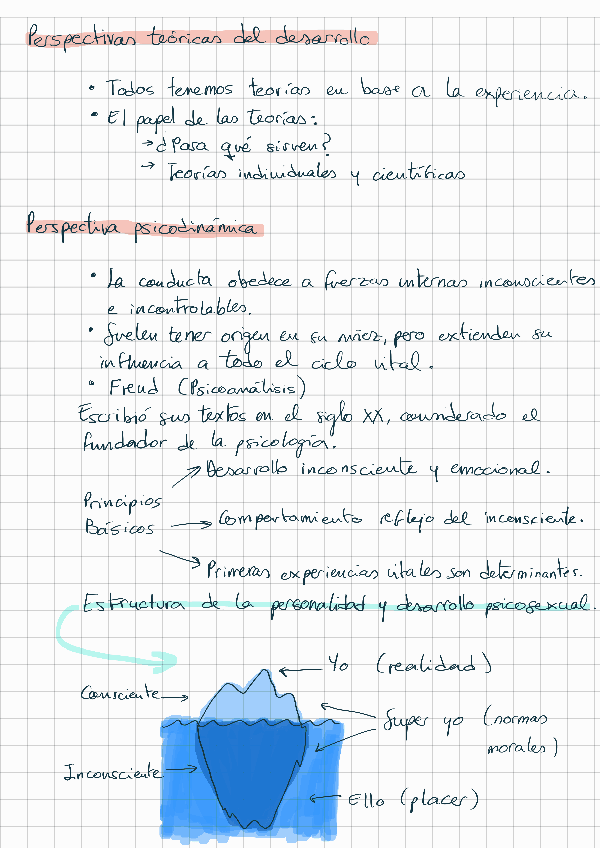 Perspectivas teóricas del desarrollo
• Todos tenemos teorías en base a la experiencia.
• El papel de las teorías:
→ ¿Para qué sirven?
→ Teorías individuales y científicas
Perspectiva psicodinámica
• La conducta obedece a fuerzas internas inconscientes
e incontrolables.
• Suelen tener origen en su niñez, pero extienden su
influencia a todo el ciclo vital.
• Freud (Psicoanálisis)
Escribió sus textos en el siglo XX, considerado el
fundador de la psicología.
→ Desarrollo inconsciente y emocional.
Principios
Básicos → Comportamiento reflejo del inconsciente.
→ Primeras experiencias vitales son determinantes.
Estructura de la personalidad y desarrollo psicosexual.
← Yo (realidad)
Consciente →
Super yo (normas
morales)
Inconsciente →
← Ello (placer)